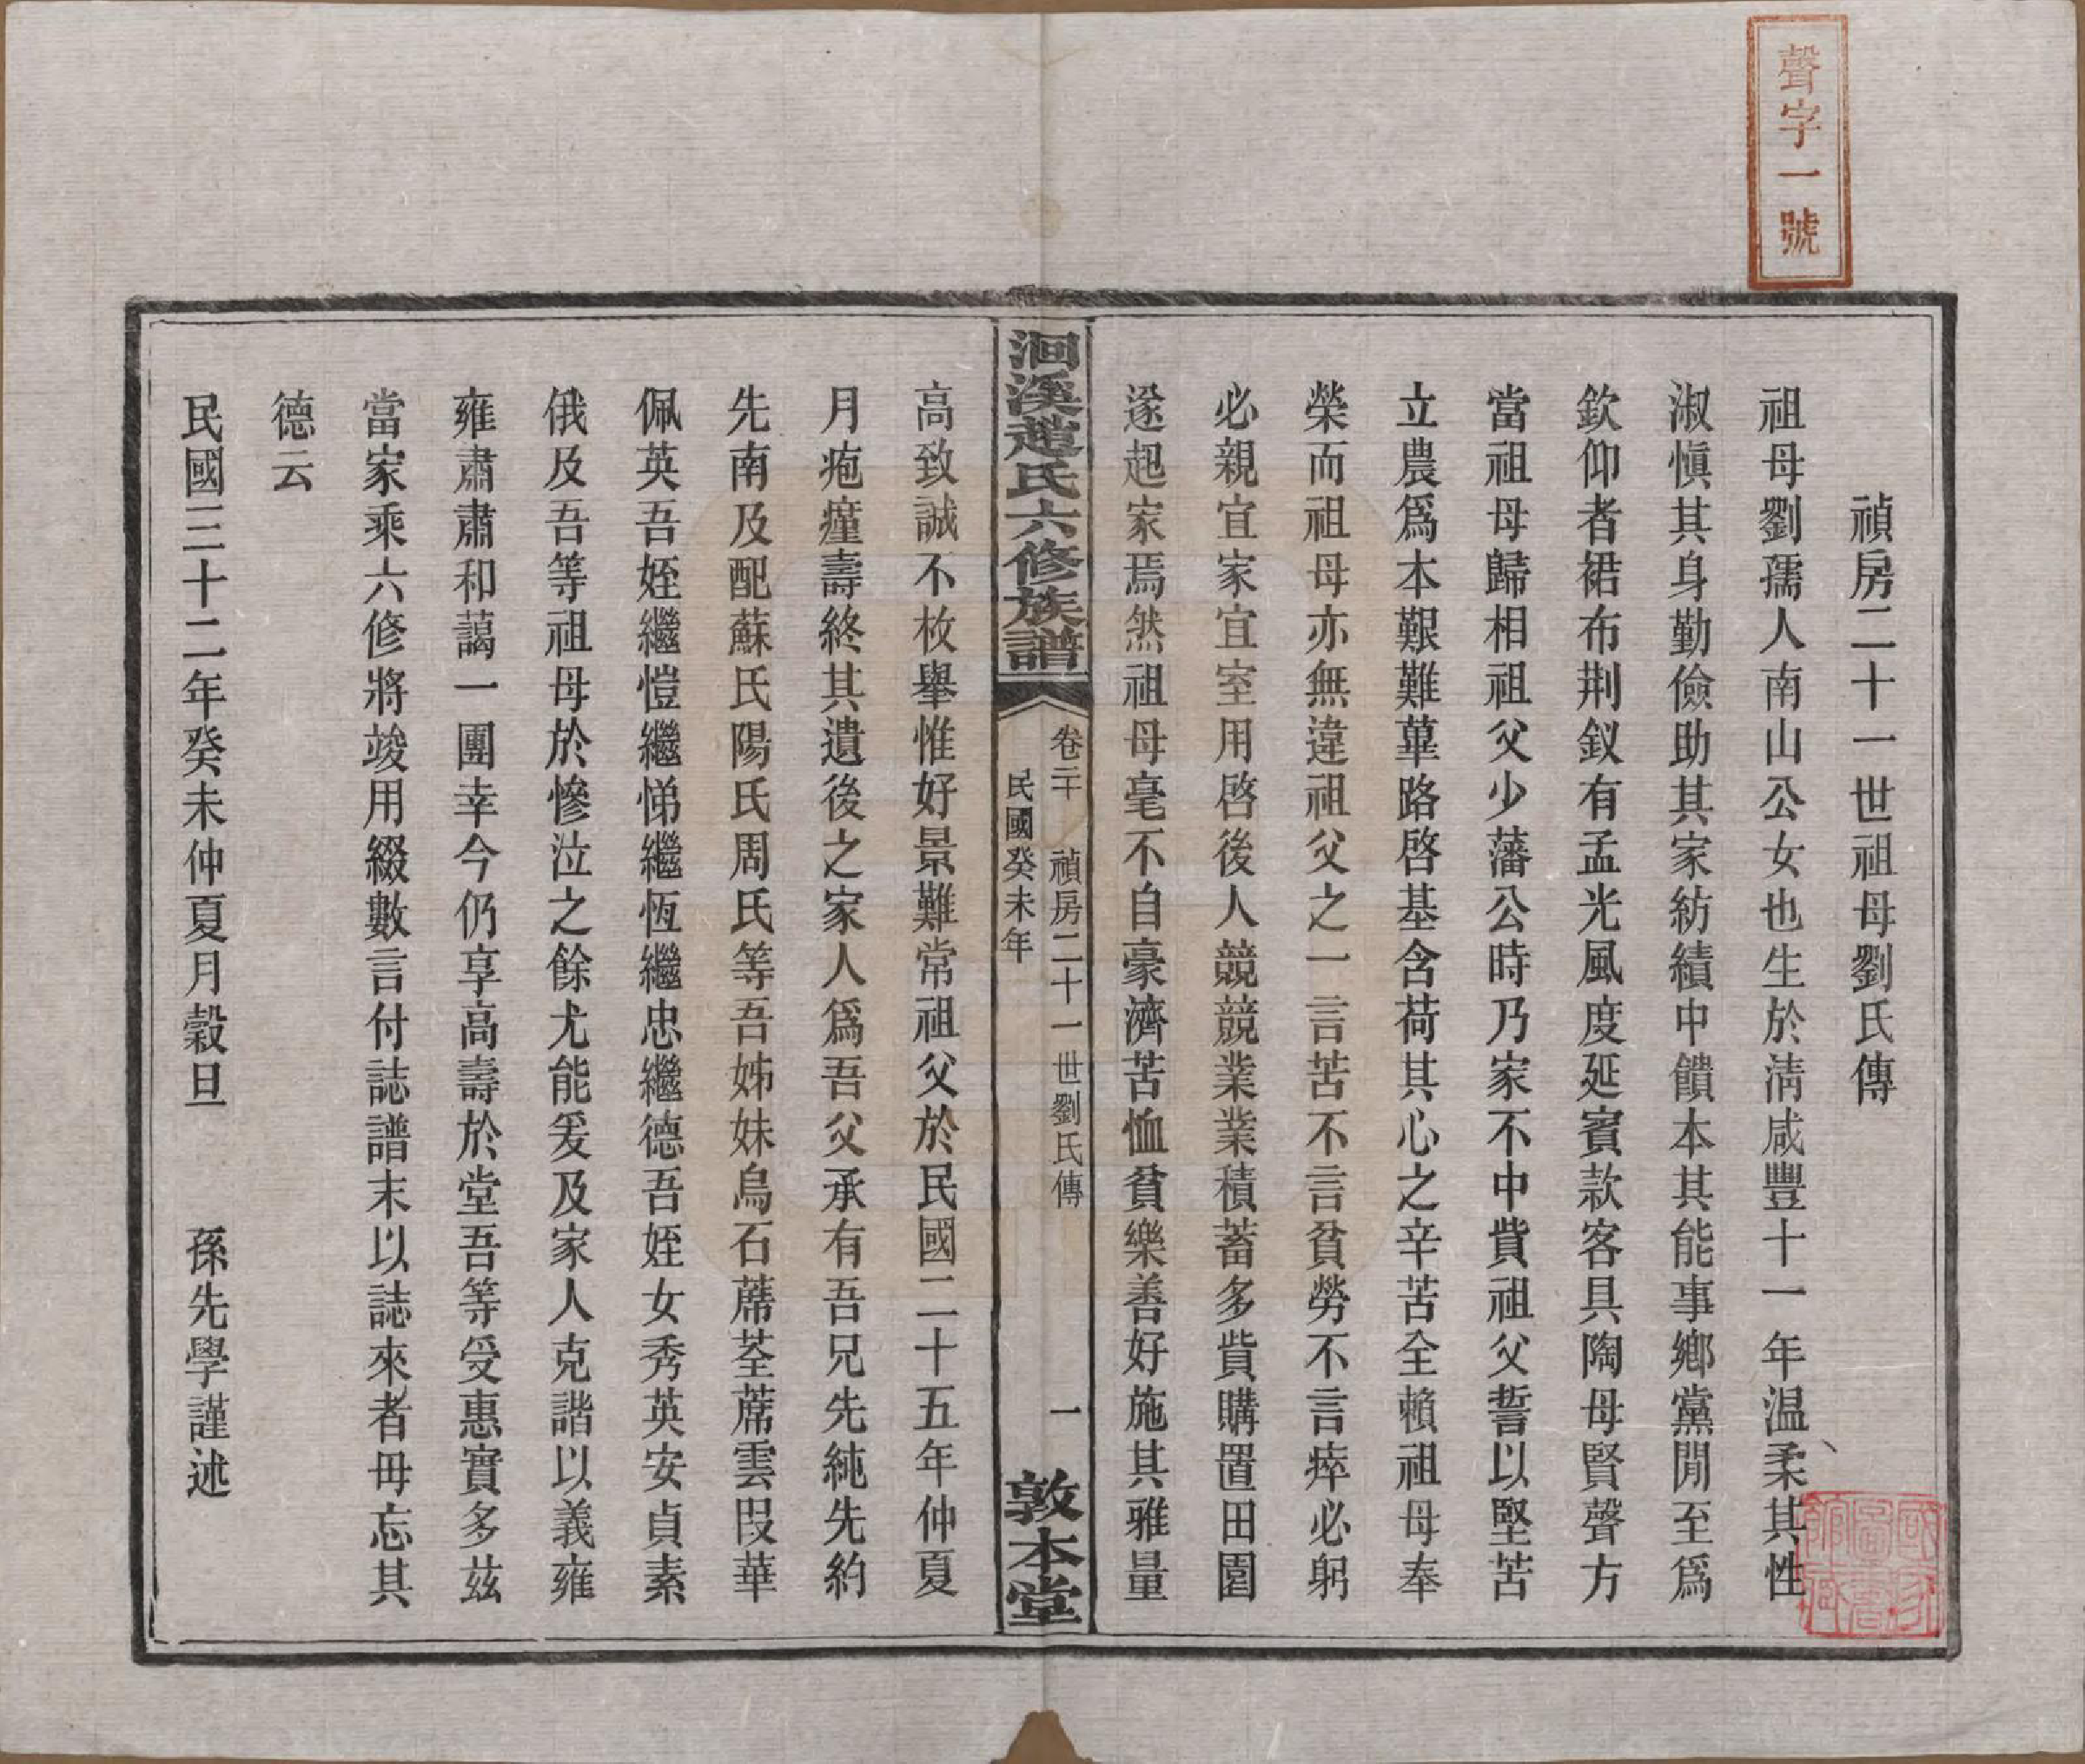 聲字一號
禎房二十一世祖母劉氏傳
祖母劉孺人南山公女也生於淸咸豐十一年温柔其性
淑愼其身勤儉助其家紡績中饋本其能事鄉黨閒至爲
欽仰者裙布荆釵有孟光風度延賓款客具陶母賢聲方
當祖母歸相祖父少藩公時乃家不中貲祖父誓以堅苦
立農爲本艱難蓽路啓基含荷其心之辛苦全賴祖母奉
榮而祖母亦無違祖父之一言苦不言貧勞不言瘁必躬
必親宜家宜室用啓後人競競業業積蓄多貲購置田園
遂起家焉然祖母毫不自豪濟苦恤貧樂善好施其雅量
洄溪趙氏六修族譜
卷二十 禎房二十一世劉氏傳 一
民國癸未年
敦本堂
高致誠不枚舉惟好景難常祖父於民國二十五年仲夏
月疱瘽壽終其遺後之家人爲吾父承有吾兄先純先約
先南及配蘇氏陽氏周氏等吾姊妹烏石蓆荃蓆雲叚華
佩英吾姪繼愷繼悌繼恆繼忠繼德吾姪女秀英安貞素
俄及吾等祖母於慘泣之餘尤能爰及家人克諧以義雍
雍肅肅和藹一團幸今仍享高壽於堂吾等受惠實多茲
當家乘六修將竣用綴數言付誌譜末以誌來者毋忘其
德云
民國三十二年癸未仲夏月穀旦 孫先學謹述
國家圖書館藏